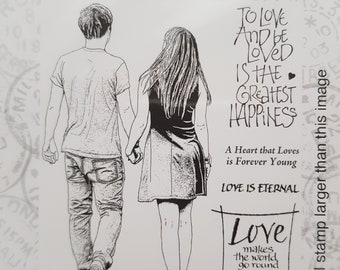 TO LOVE
AND BE
LOVED
IS THE
GREATEST
HAPPINESS
A Heart that Loves
is Forever Young
LOVE IS ETERNAL
Love
makes
the world
go round
stamp larger than this image